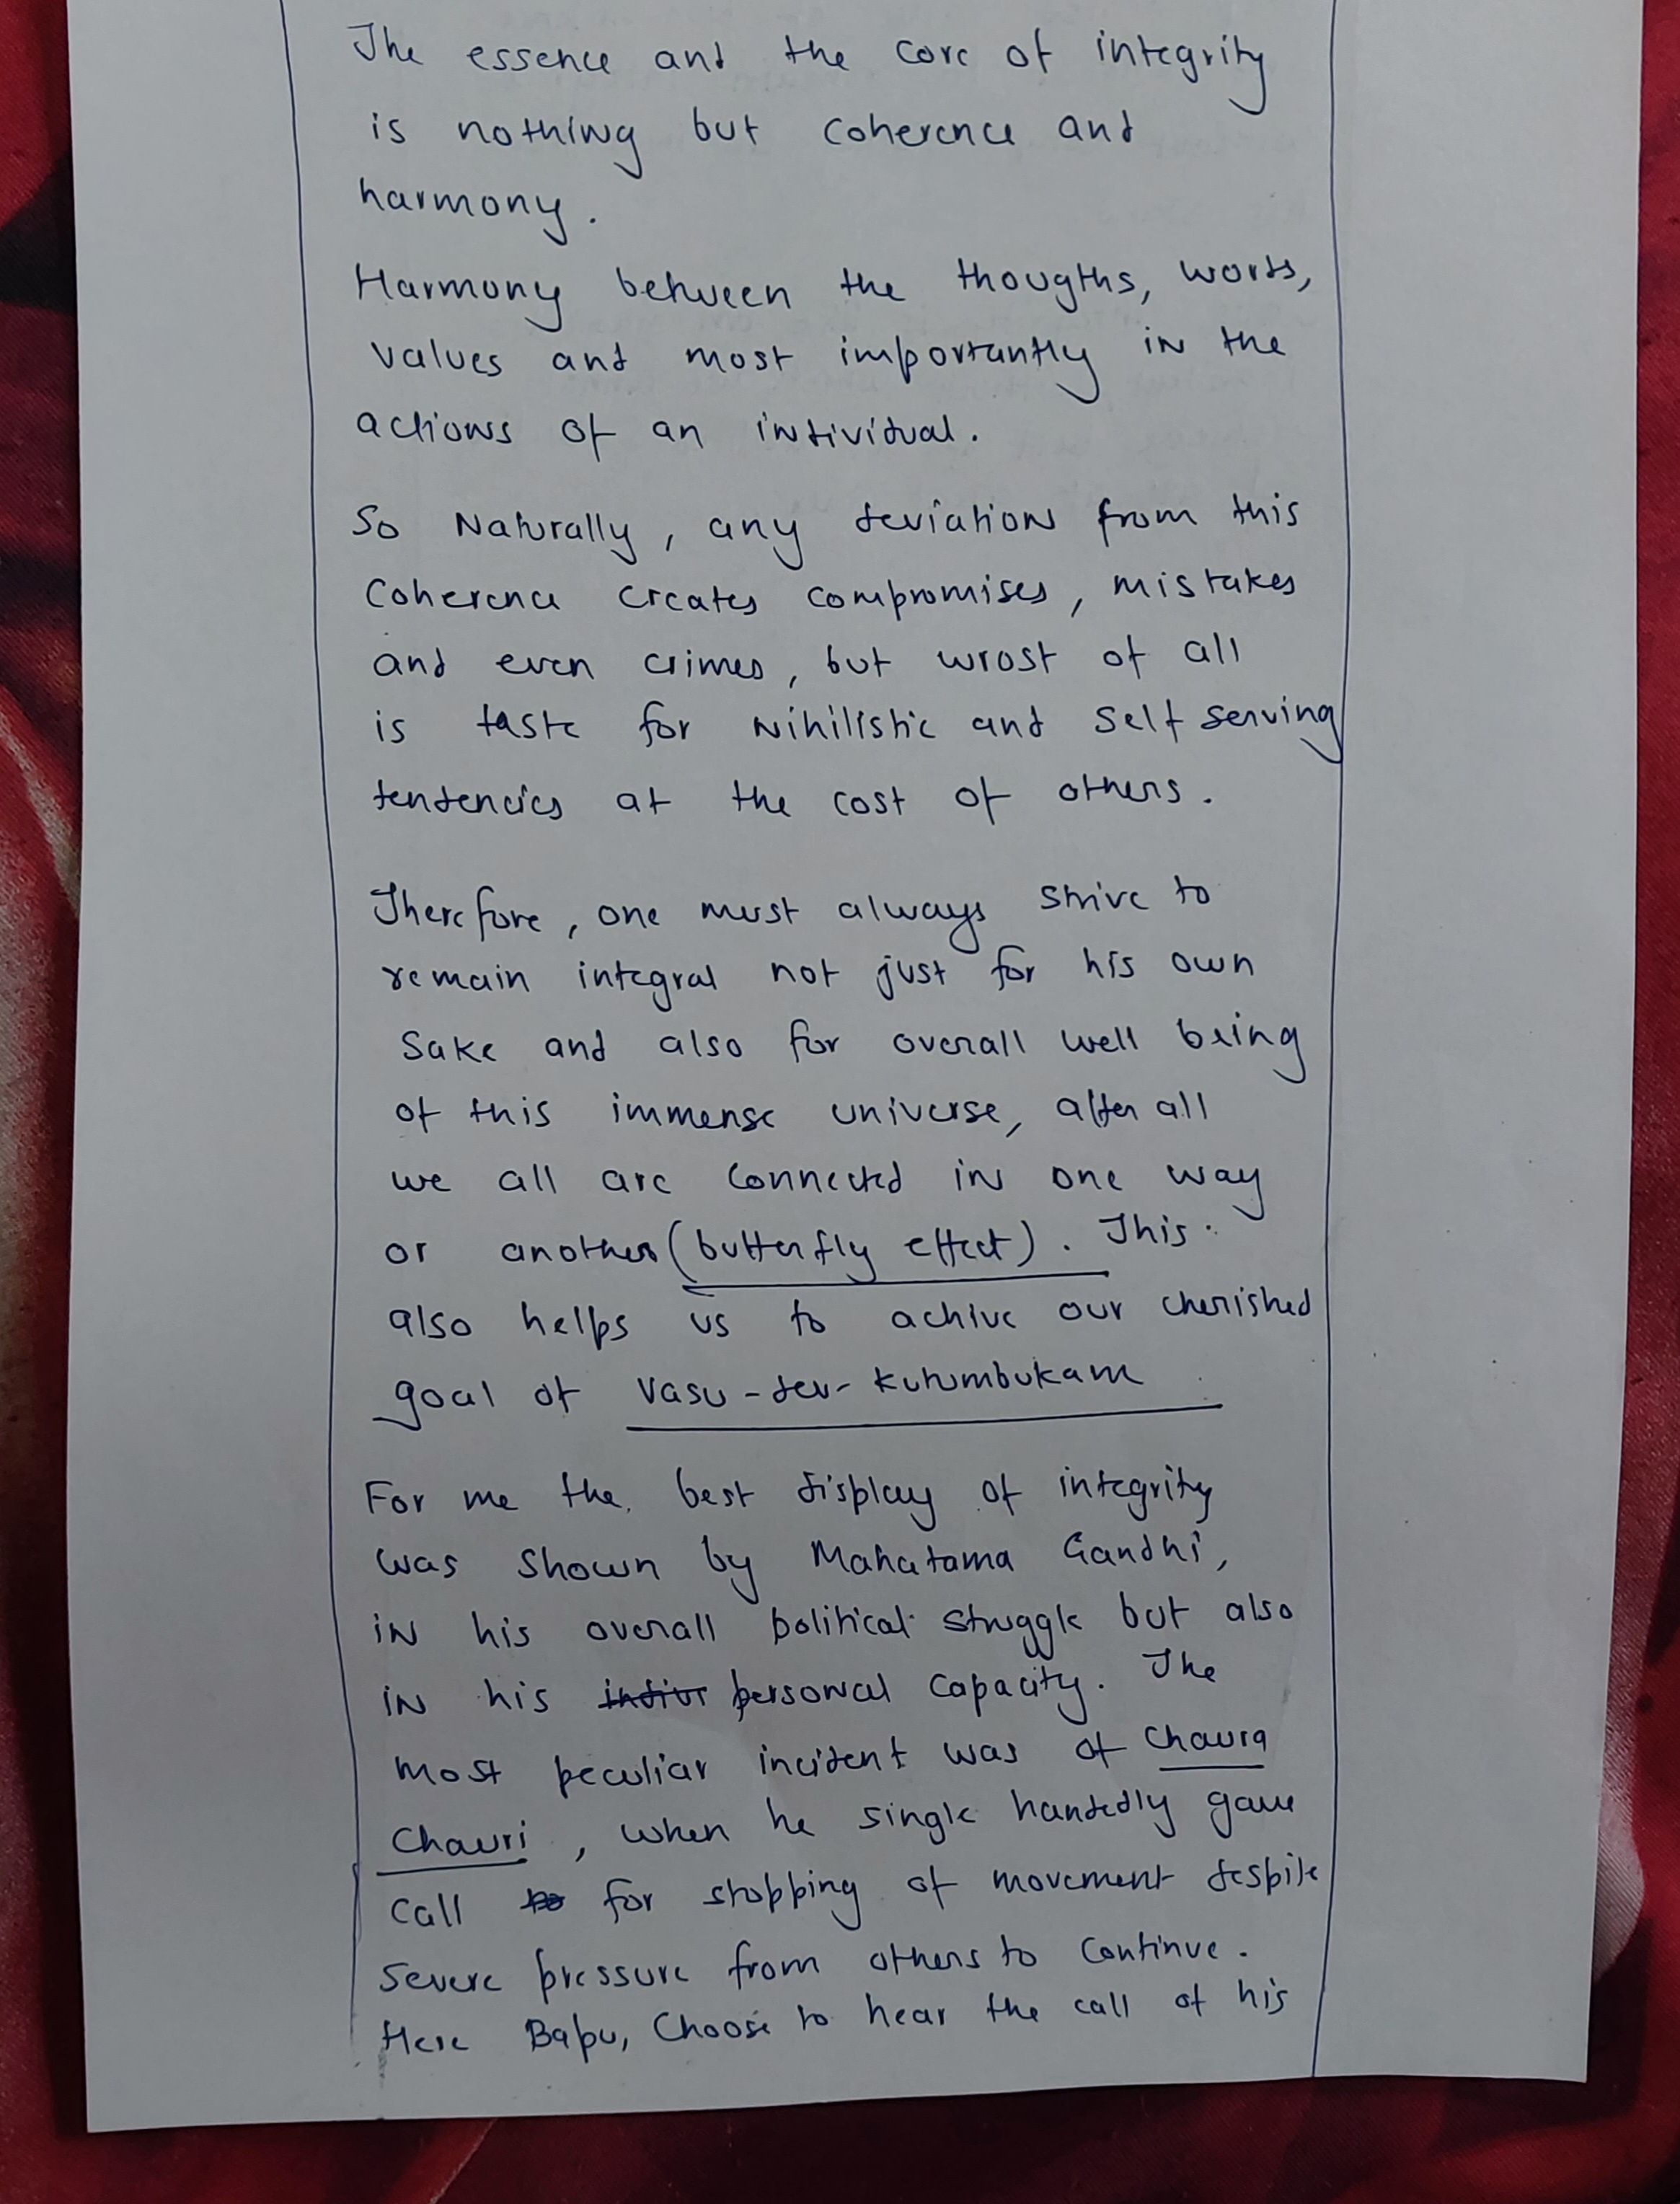 The essence and the core of integrity
is nothing but coherence and
harmony.
Harmony between the thougths, words,
values and most importantly in the
actions of an individual.
So Naturally, any deviation from this
Coherence creates compromises, mistakes
and even crimes, but wrost of all
is taste for Nihilistic and self serving
tendencies at the cost of others.
Therefore, one must always strive to
remain integral not just for his own
Sake and also for overall well being
of this immense universe, after all
we all are connected in one way
or another (butterfly effect). This
also helps us to achive our cherished
goal of Vasu-dev-kutumbukam
For me the best display of integrity
was shown by Mahatama Gandhi,
in his overall political struggle but also
in his personal capacity. The
most peculiar incident was of Chaura
Chauri, when he single handedly gave
call for stopping of movement despite
severe pressure from others to continue.
Here Bapu, Choose to hear the call of his